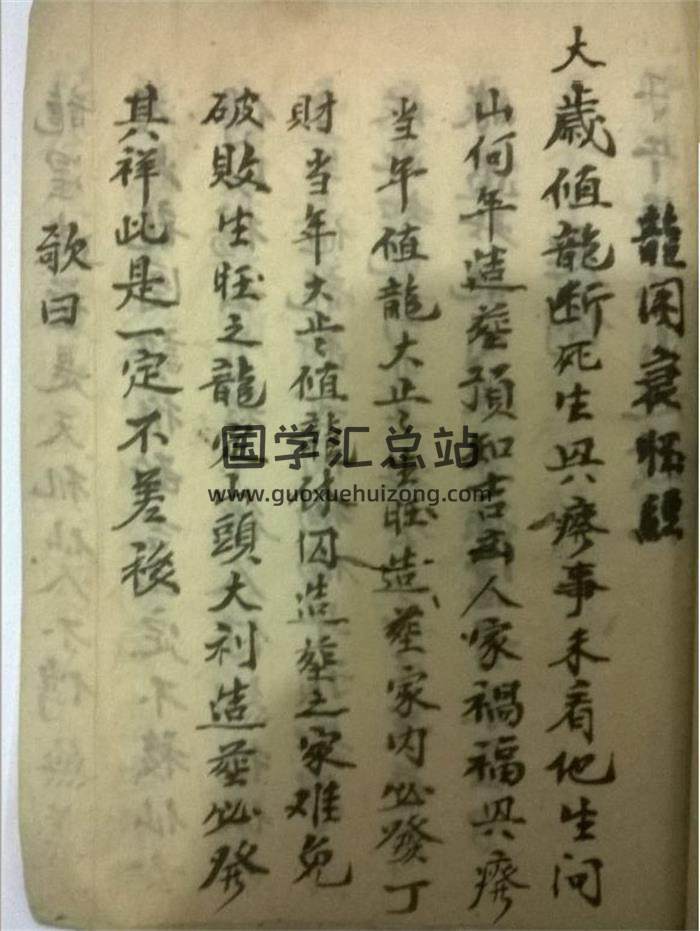 龍囯衰旺経
大歲值龍断死生興廃事未看他生问
山何年造塟預知吉凶人家禍福興廃
当年值龍大止是生旺造塟家内必發丁
財当年大止值龍休囚造塟之家难免
破敗生旺之龍定山頭大利造塟必發
其祥此是一定不差移
歌曰
国学汇总站
www.guoxuehuizong.com